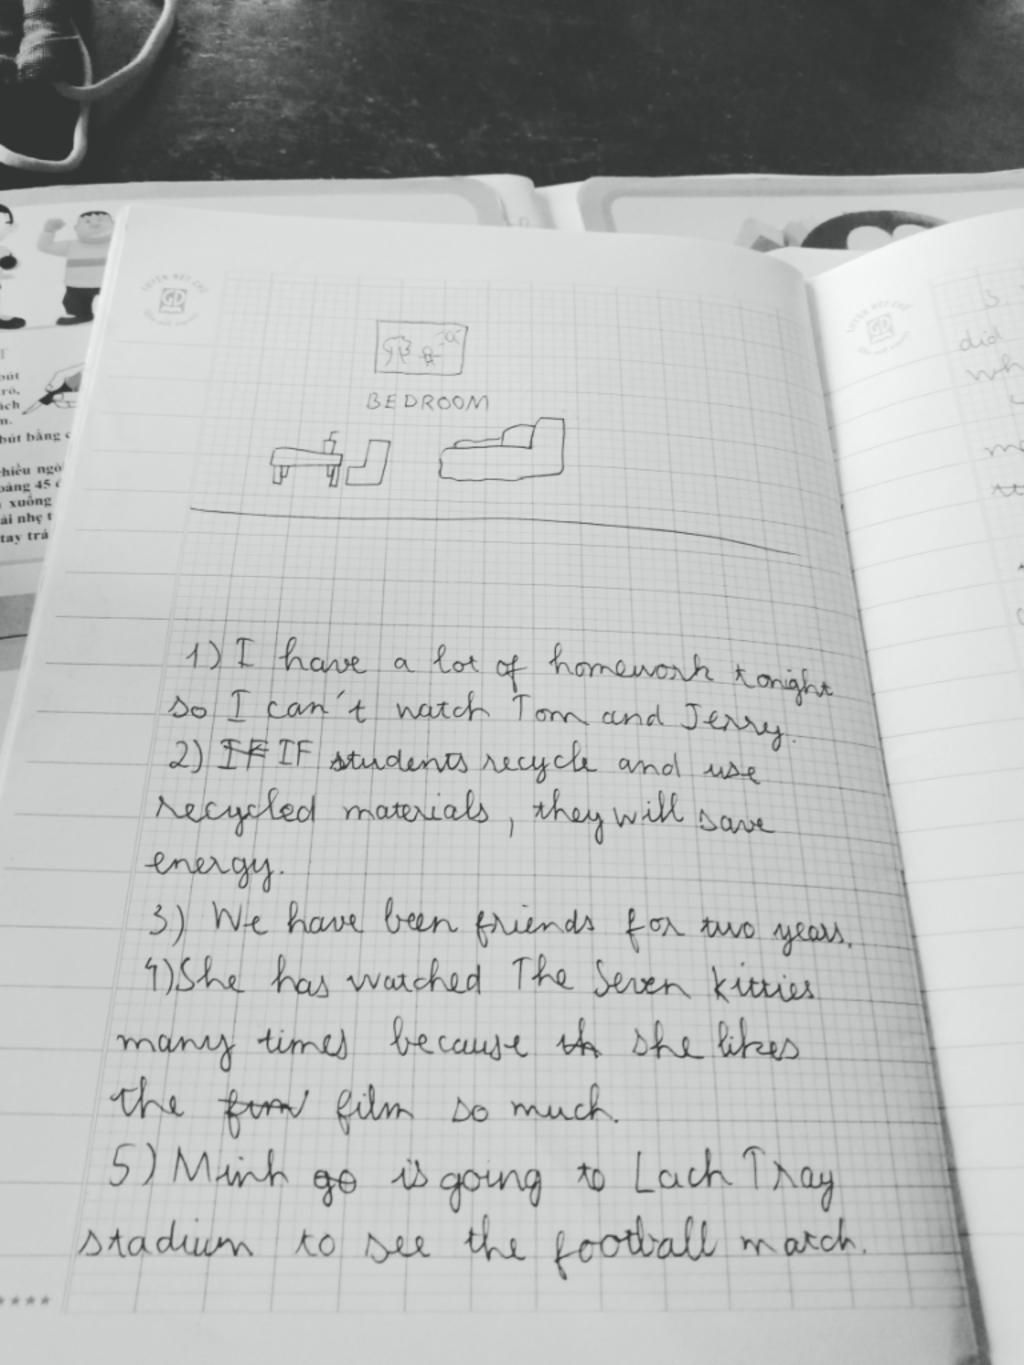 BEDROOM
1) I have a lot of homework tonight
so I can't watch Tom and Jerry.
2) IF IF students recycle and use
recycled materials, they will save
energy.
3) We have been friends for two years.
4) She has watched The Seven kitties
many times because th she likes
the film so much.
5) Minh go is going to Lach Tray
stadium to see the football match.
bút
rõ,
ách
bút bằng
chiều ngò
oảng 45
xuống
ải nhẹ t
tay trá
GD
GD
did
wh